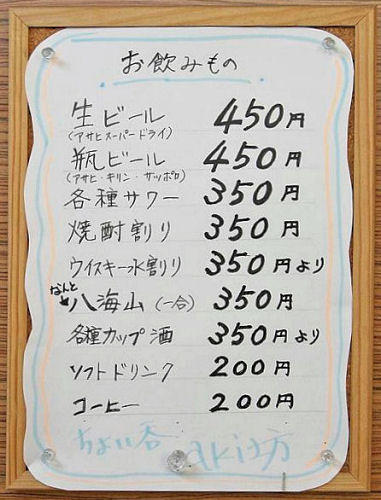 お飲みもの
生ビール 450円
(アサヒスーパードライ)
瓶ビール 450円
(アサヒ・キリン・サッポロ)
各種サワー 350円
焼酎割り 350円
ウイスキー水割り 350円より
なんと
八海山(一合) 350円
各種カップ酒 350円より
ソフトドリンク 200円
コーヒー 200円
ちょい呑